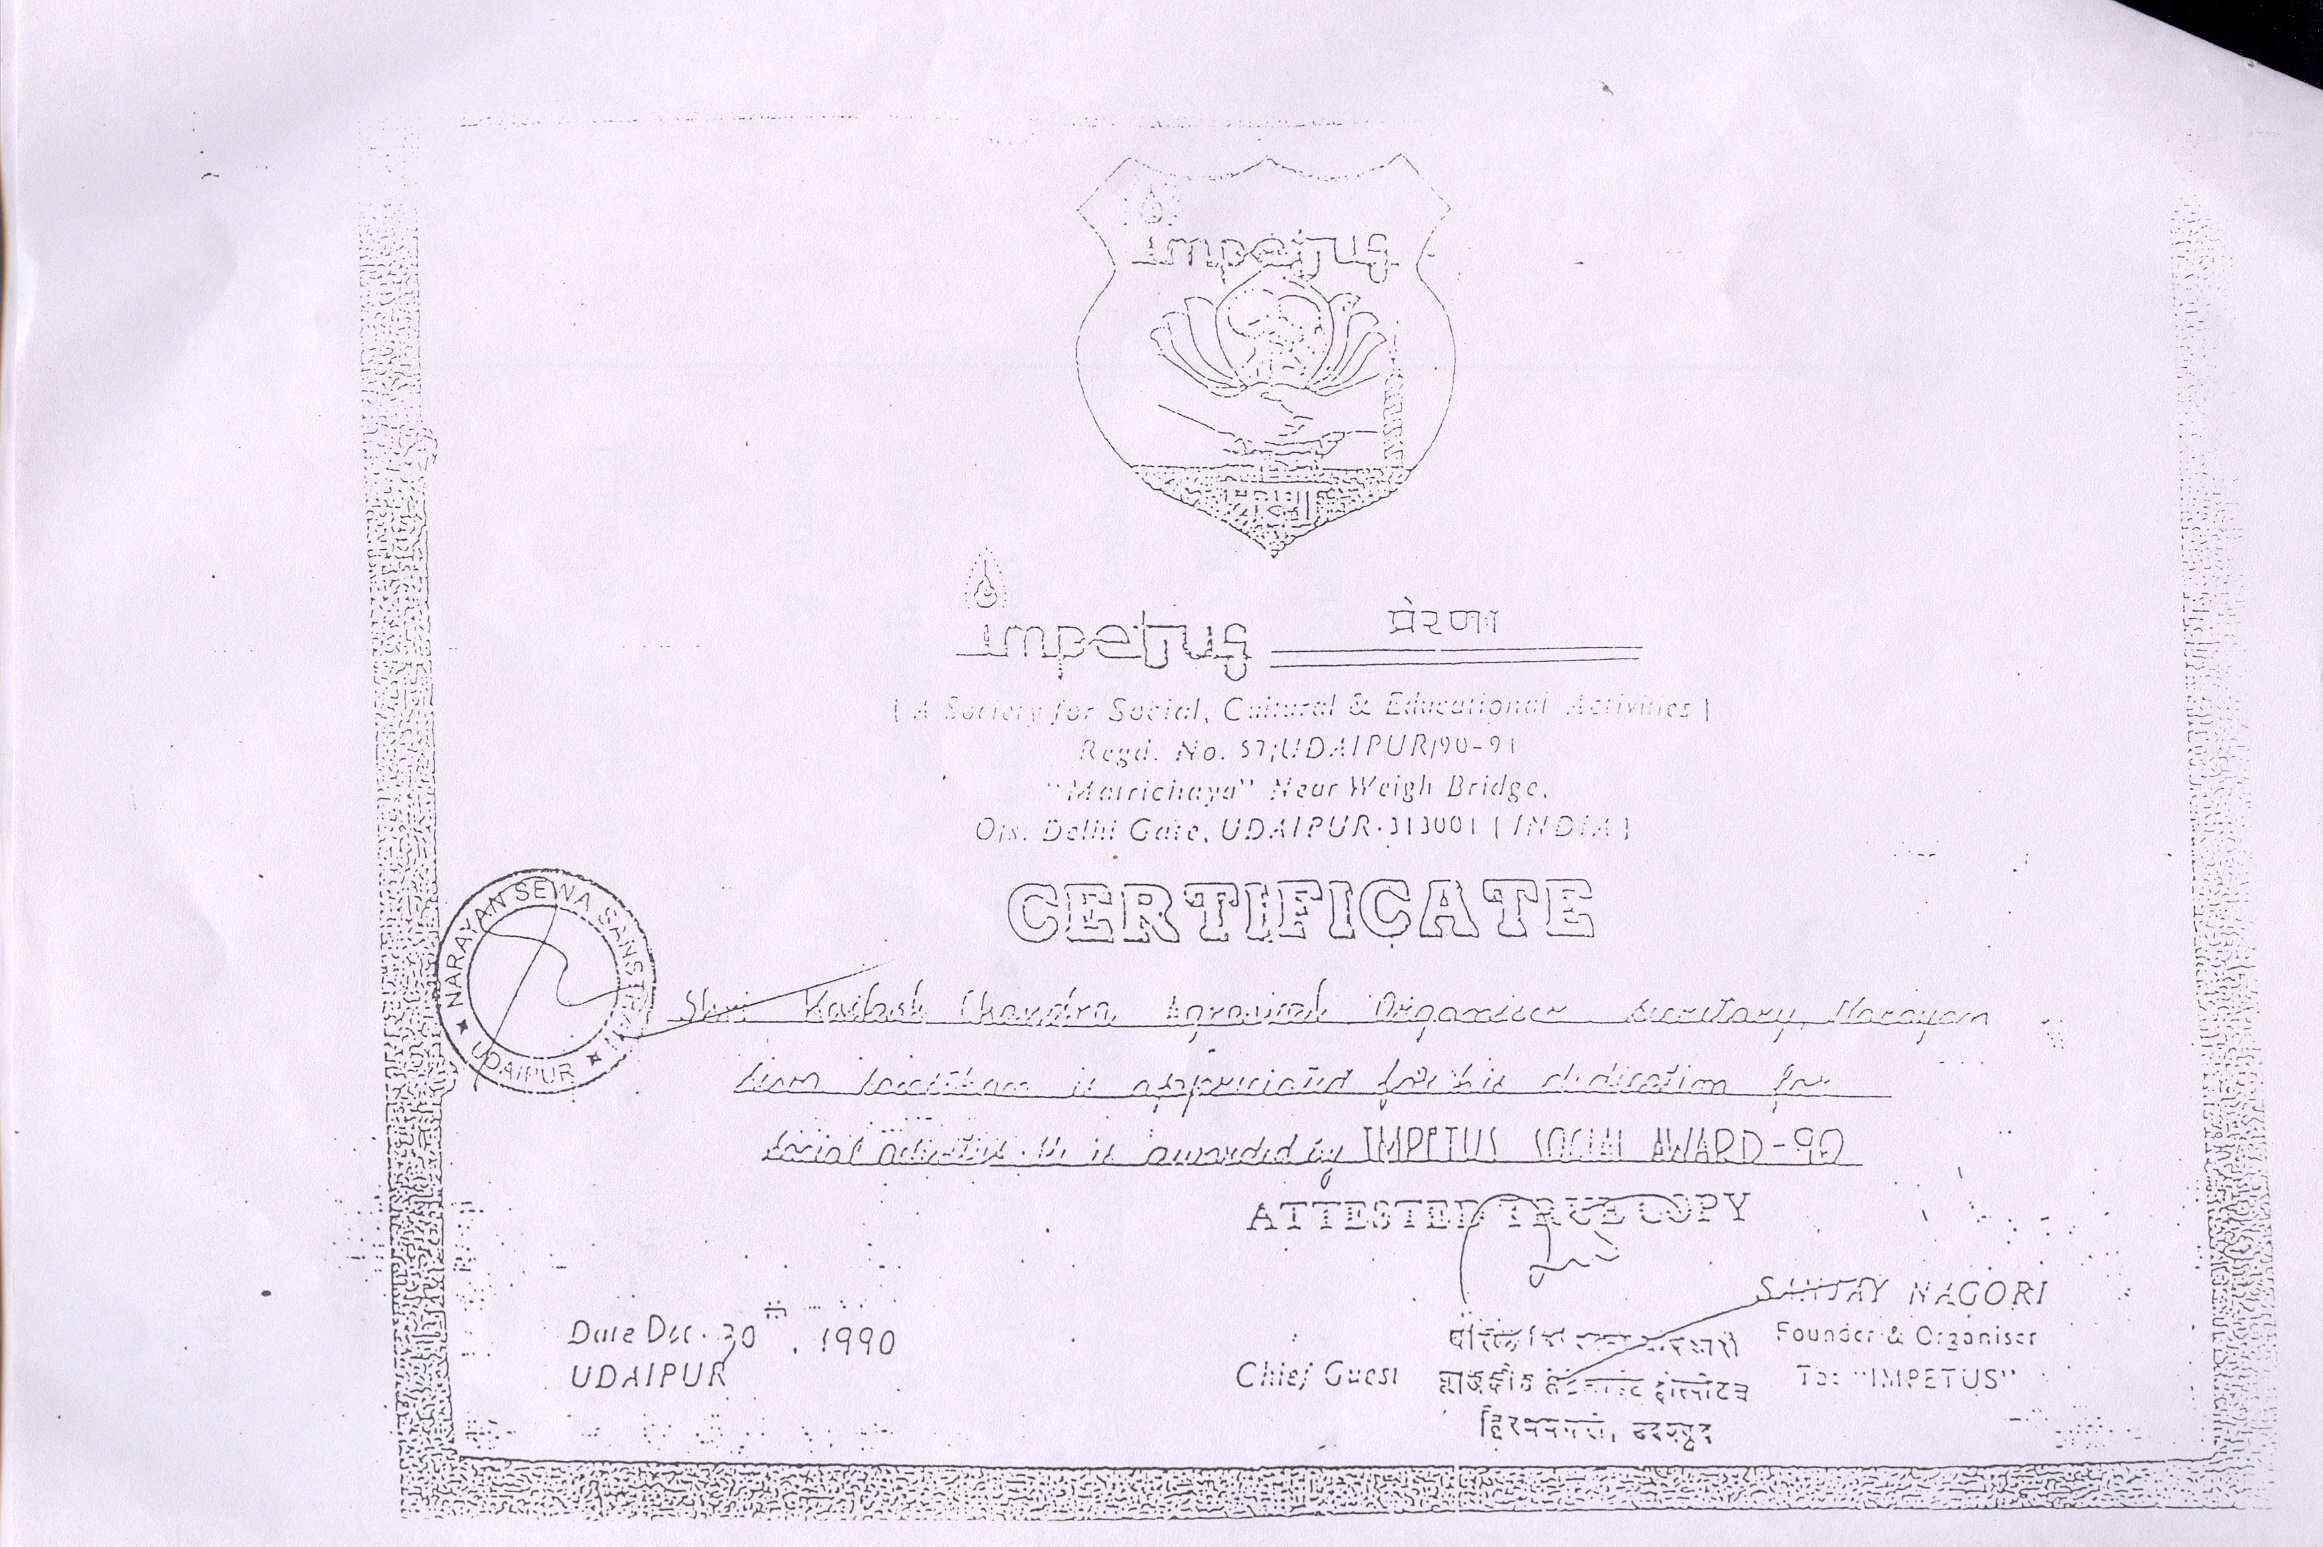 impetus
प्रेरणा
impetus प्रेरणा
( A Society for Social, Cultural & Educational Activities )
Regd. No. 57/UDAIPUR/90-91
"Matrichaya" Near Weigh Bridge,
O/s. Delhi Gate, UDAIPUR-313001 ( INDIA )
CERTIFICATE
NARAYAN SEWA SANSTHAN
UDAIPUR
Shri Kailash Chandra Agrawal Organiser Secretary, Narayan
Sewa Sansthan is appreciated for his dedication for
social activities. He is awarded by IMPETUS SOCIAL AWARD-90
ATTESTED TRUE COPY
SANJAY NAGORI
Date Dec. 30th, 1990
Founder & Organiser
UDAIPUR
Chief Guest
To: "IMPETUS"
हिरणमगरी, उदयपुर